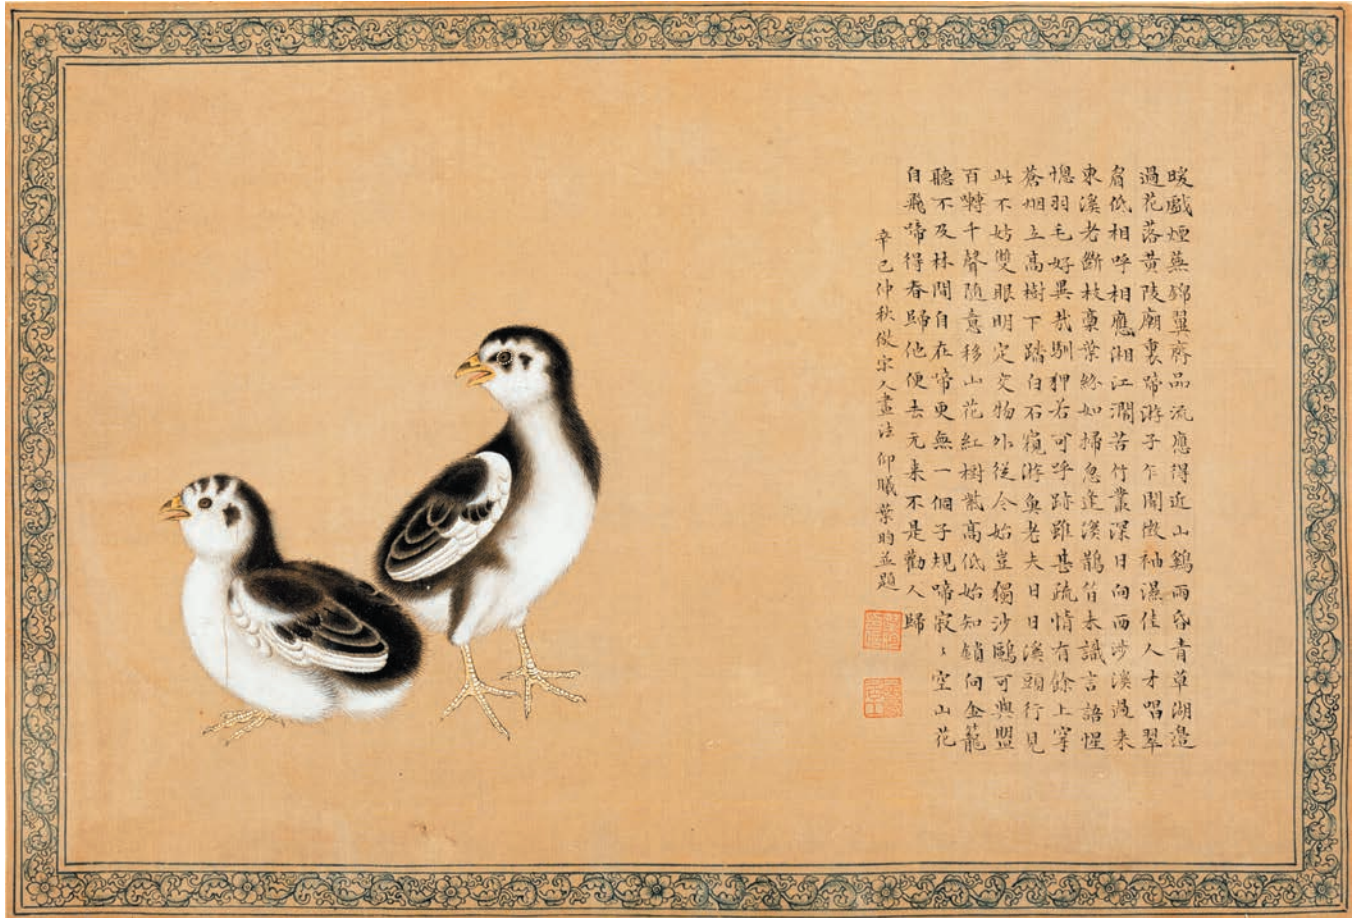 暖戲煙蕪錦翼齊品流應得近山鷄雨昏青草湖邉
過花落黄陵廟裏蹄游子乍聞徴袖濕佳人才唱翠
眉低相呼相應湘江濶苦竹叢深日向西渉溪過来
東溪老斷枝槀葉紛如掃忽逢溪鵲皆未識言語惺
惚羽毛好異哉馴狎若可呼跡雖甚疏情有餘上穿
蒼烟立高樹下踏白石窺游魚老夫日日溪頭行見
此不妨雙眼明定交物外従今始豈獨沙鷗可與盟
百囀千聲隨意移山花紅樹㡬高低始知鎖向金籠
聽不及林間自在啼更無一個子規啼寂〻空山花
自飛啼得春歸他便去元来不是勸人歸
辛已仲秋倣宋人畫法仰曦葉昀並題